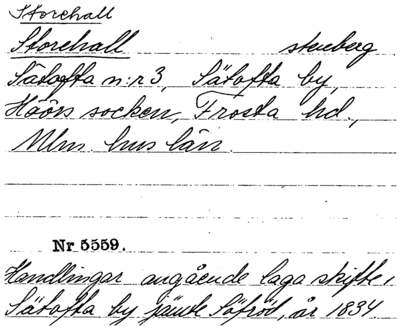 Storehall
Storehall stenberg
Sätofta n:r 3, Sätofta by,
Höörs socken, Frosta hd.,
Mlm hus län.
Nr 5559.
Handlingar angående laga skifte,
Sätofta by jämte Jöfröd, år 1834.